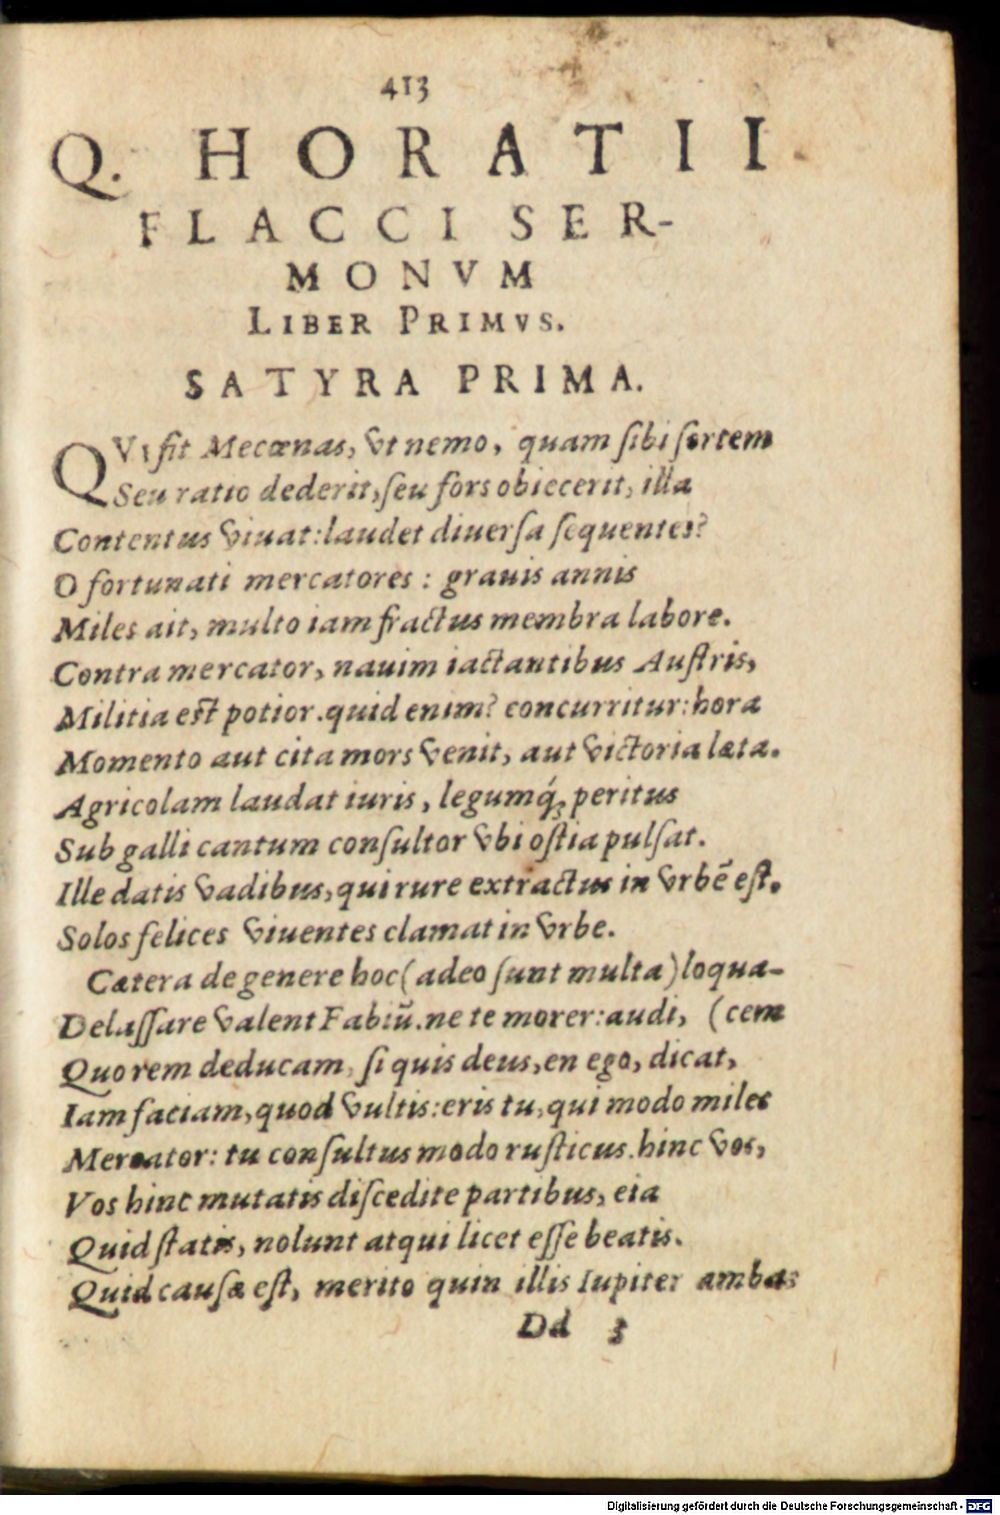 413
Q. HORATII
FLACCI SER-
MONVM
LIBER PRIMVS.
SATYRA PRIMA.
QVI fit Mecœnas, vt nemo, quam ſibi ſortem
Seu ratio dederit, ſeu fors obiecerit, illa
Contentus viuat: laudet diuerſa ſequentes?
O fortunati mercatores: grauis annis
Miles ait, multo iam fractus membra labore.
Contra mercator, nauim iactantibus Auſtris,
Militia est potior. quid enim? concurritur: hora
Momento aut cita mors venit, aut victoria læta.
Agricolam laudat iuris, legumq́; peritus
Sub galli cantum conſultor vbi oſtia pulſat.
Ille datis vadibus, qui rure extractus in vrbē eſt.
Solos felices viuentes clamat in vrbe.
Cætera de genere hoc (adeo ſunt multa) loqua-
Delaſſare valent Fabiū. ne te morer: audi, (cem
Quo rem deducam, ſi quis deus, en ego, dicat,
Iam faciam, quod vultis: eris tu, qui modo miles
Mercator: tu conſultus modo ruſticus. hinc vos,
Vos hinc mutatis diſcedite partibus, eia
Quid ſtatis, nolunt atqui licet eſſe beatis.
Quid cauſæ eſt, merito quin illis Iupiter ambas
Dd 3
Digitalisierung gefördert durch die Deutsche Forschungsgemeinschaft - DFG